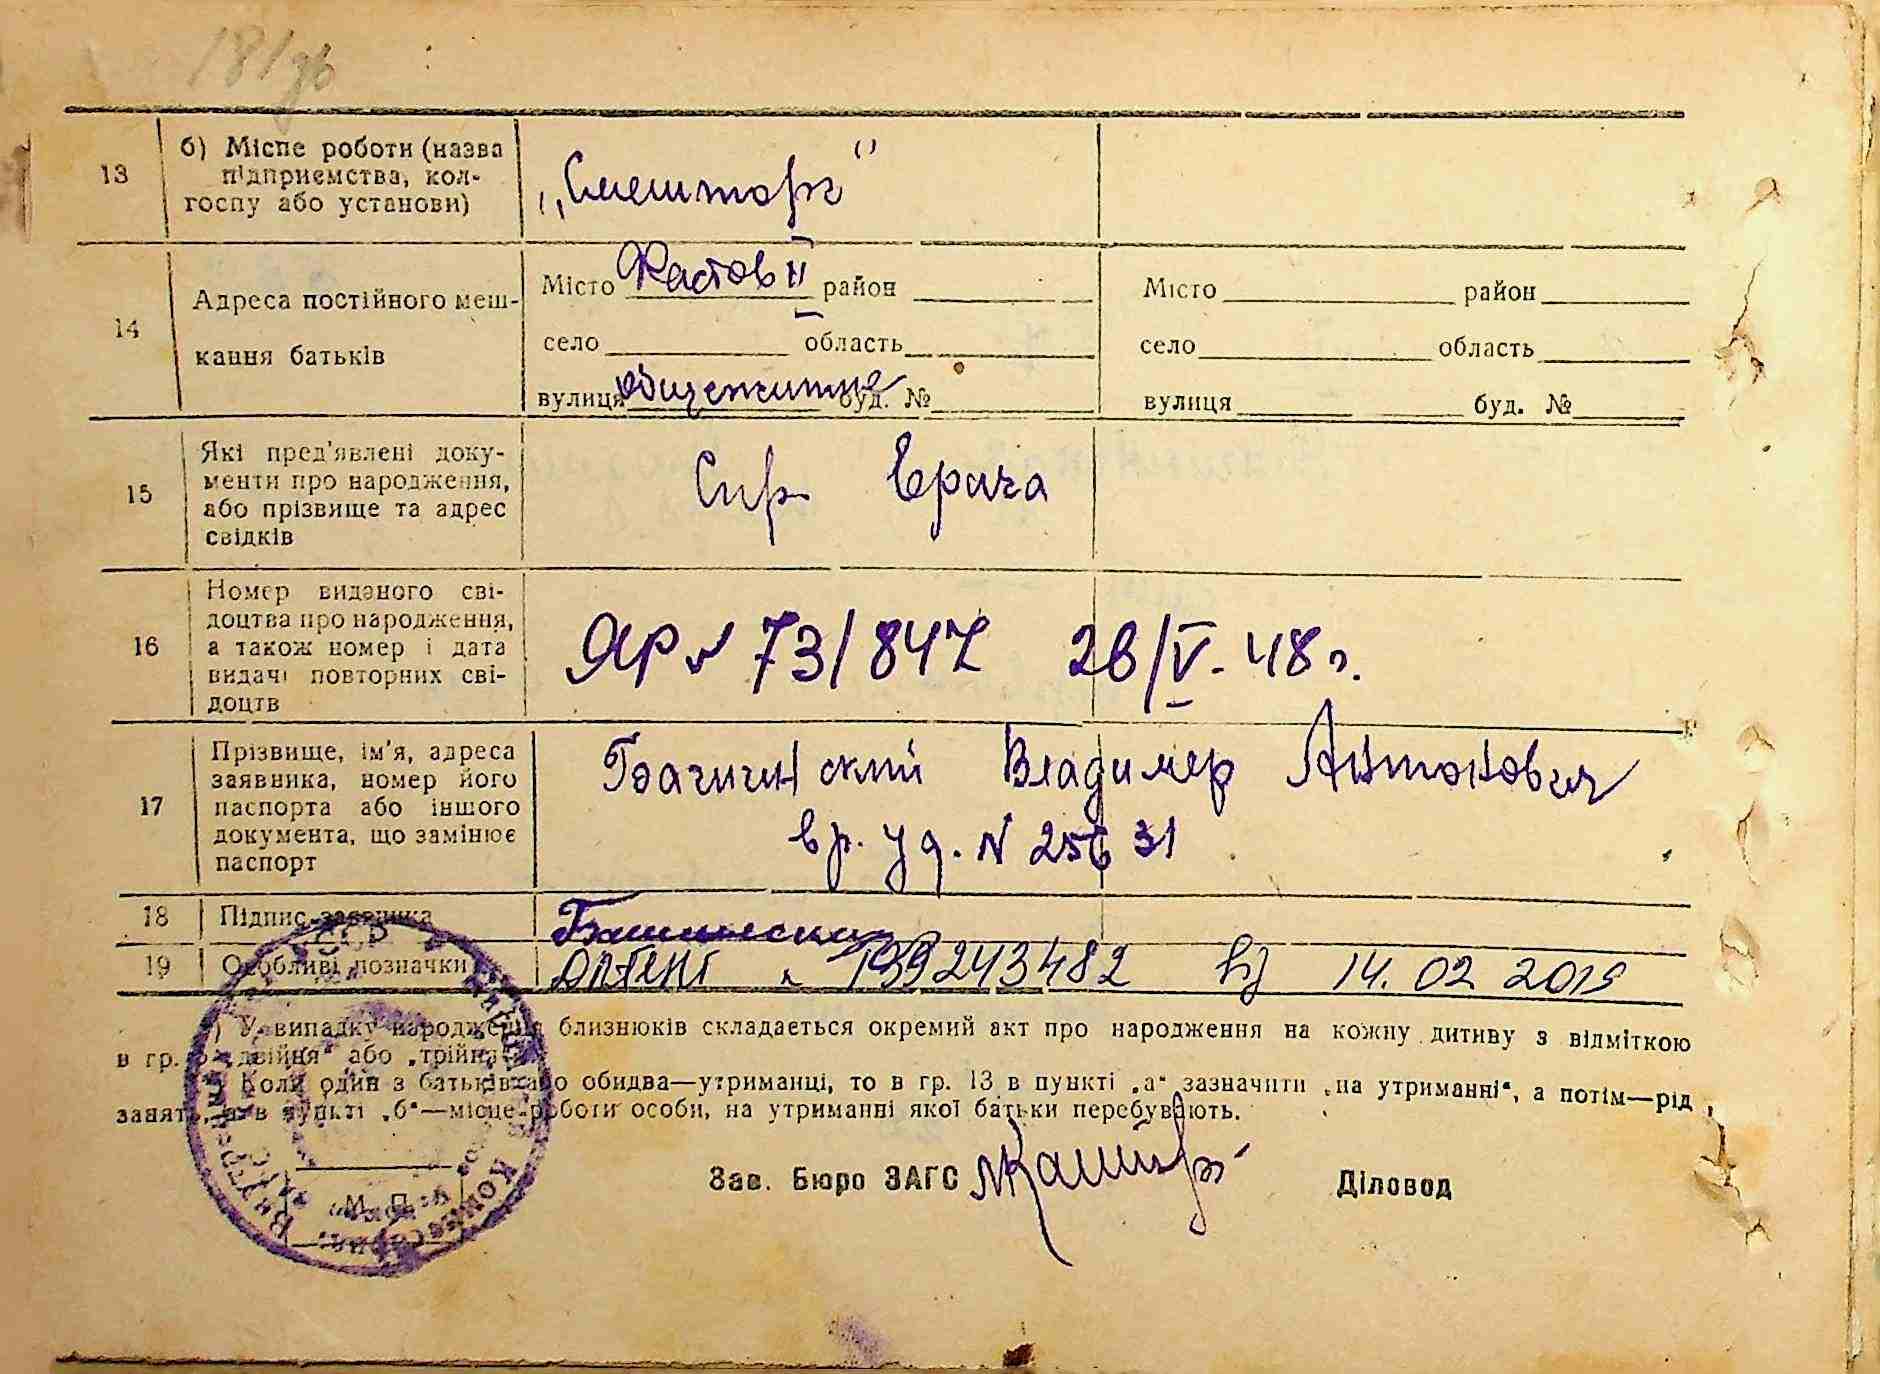 181зв
13 б) Місце роботи (назва підприємства, колгоспу або установи) „Смешторг"
14 Адреса постійного мешкання батьків
Місто Фастов II район
село область
вулиця общежитие буд. №
Місто район
село область
вулиця буд. №
15 Які пред'явлені документи про народження, або прізвище та адрес свідків Спр Врача
16 Номер виданого свідоцтва про народження, а також номер і дата видачі повторних свідоцтв ЯР № 73/847 28/V-48 г.
17 Прізвище, ім'я, адреса заявника, номер його паспорта або іншого документа, що замінює паспорт Бачинский Владимир Антонович
вр. уд. N 256 31
18 Підпис заявника
19 Особливі позначки 199243482 14.02 2019
) У випадку народження близнюків складається окремий акт про народження на кожну дитину з відміткою
в гр. „двійня" або „трійня
Коли один з батьків або обидва—утриманці, то в гр. 13 в пункті „а" зазначити „на утриманні", а потім—рід
занять, а в пункті „б"—місце роботи особи, на утриманні якої батьки перебувають.
Зав. Бюро ЗАГС Діловод
М. П.